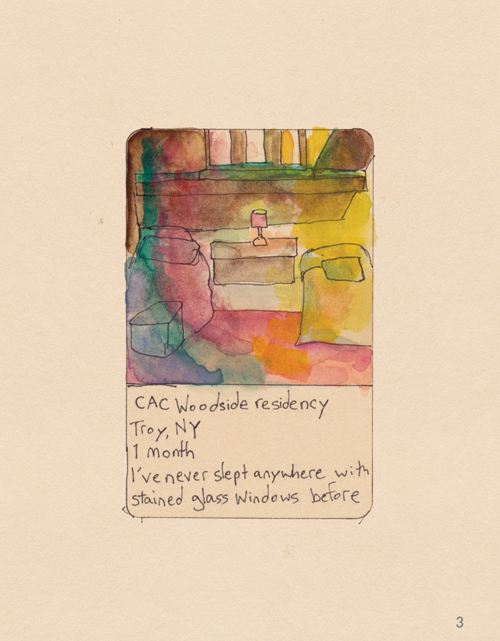 CAC Woodside residency
Troy, NY
1 month
I've never slept anywhere with
stained glass windows before
3